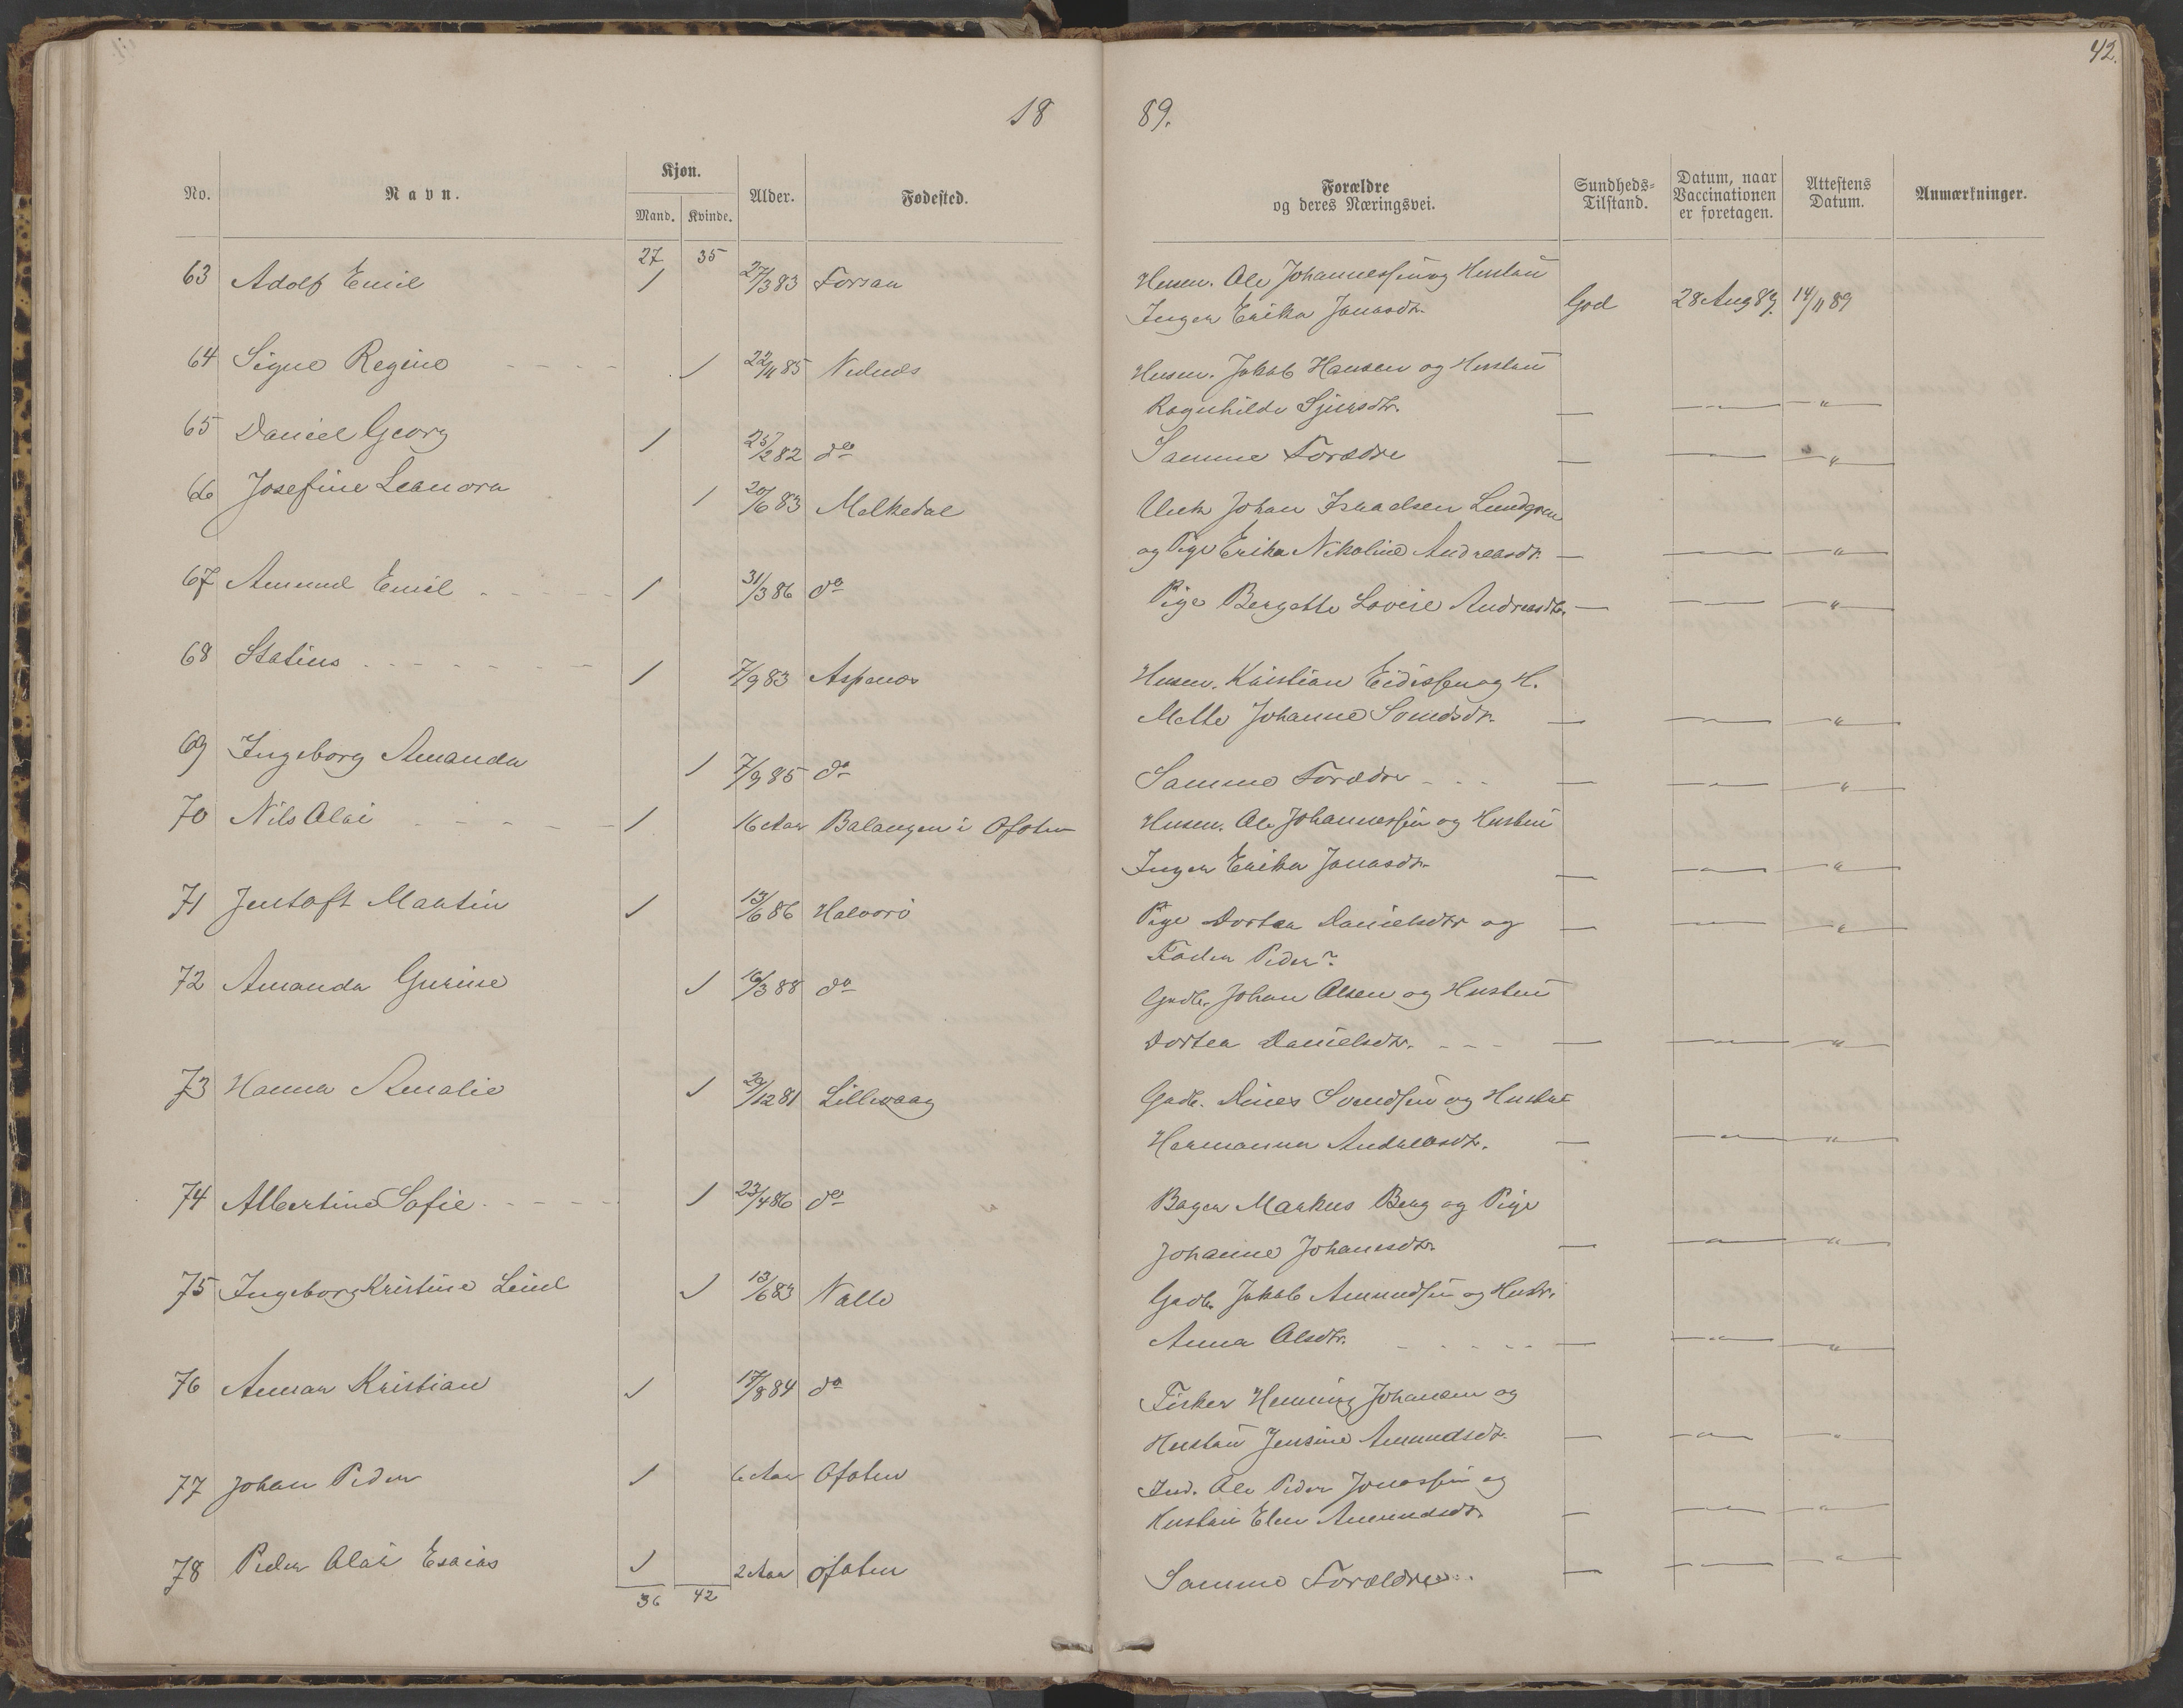 42.
18 89.
No. Navn. Kjøn. Alder. Fødested. Forældre og deres Næringsvei. Sundheds-Tilstand. Datum, naar Vaccinationen er foretagen. Attestens Datum. Anmærkninger.
Mand. Kvinde.
27 35
63 Adolf Emil 1 27/3 83 Forsan Husm. Ole Johannessen og Hustru
Inger Erika Jonasdtr. God 28 Aug 89. 14/11 89
64 Signe Regine - - - - 1 22/11 85 Husm. Jakob Hansen og Hustru
Ragnhilde Sjursdtr. — —"— —"—
65 Daniel Georg 1 25/12 82 do Samme Forældre — —"— —"—
66 Josefine Leanora 1 20/6 83 Melkedal Johan Israelsen Lundgren
og Pige Erika Nikoline Andreasdtr. — —"— —"—
67 Amund Emil - - - - 1 31/3 86 do Pige Bergette Lovise Andreasdtr. — —"— —"—
68 Statius - - - - - - 1 7/9 83 Aspenes Husm. Kristian Eidissen og H.
Mette Johanne Svendsdtr. — —"— —"—
69 Ingeborg Amanda 1 7/9 85 do Samme Forældre - - - — —"— —"—
70 Nils Olai - - - - - 1 16 Aar Balangen i Ofoten Husm. Ole Johannessen og Hustru
Inger Erika Jonasdtr. — —"— —"—
71 Jentoft Martin 1 13/6 86 Halvori Pige Dortea Danielsdtr og — —"— —"—
Fader Peder?
72 Amanda Gurine 1 16/3 88 do Gadb. Johan Olsen og Hustru
Dortea Danielsdtr. - - - — —"— —"—
73 Hanna Amalie 1 29/12 81 Lillevaag Gadb. Dines Svendsen og Hustru
Hermanna Andreasdtr. — —"— —"—
74 Albertine Sofie - - - - 1 23/4 86 do Bager Markus Berg og Pige
Johanne Johansdtr. — —"— —"—
75 Ingeborg Kristine 1 13/6 83 Valle Gadb. Jakob Amundsen og Hustr.
Anna Olsdtr. - - - - - — —"— —"—
76 Kristian 1 17/8 84 do Fisker Henning Johansen og
Hustru Jensine Amundsdtr. — —"— —"—
77 Johan Peder 1 6 Aar Ofoten Ind. Ole Peder Jonassen og
Hustru Elen Amundsdtr. — —"— —"—
78 Peder Olai Esaias 1 2 Aar Ofoten Samme Forældre. — —"— —"—
36 42